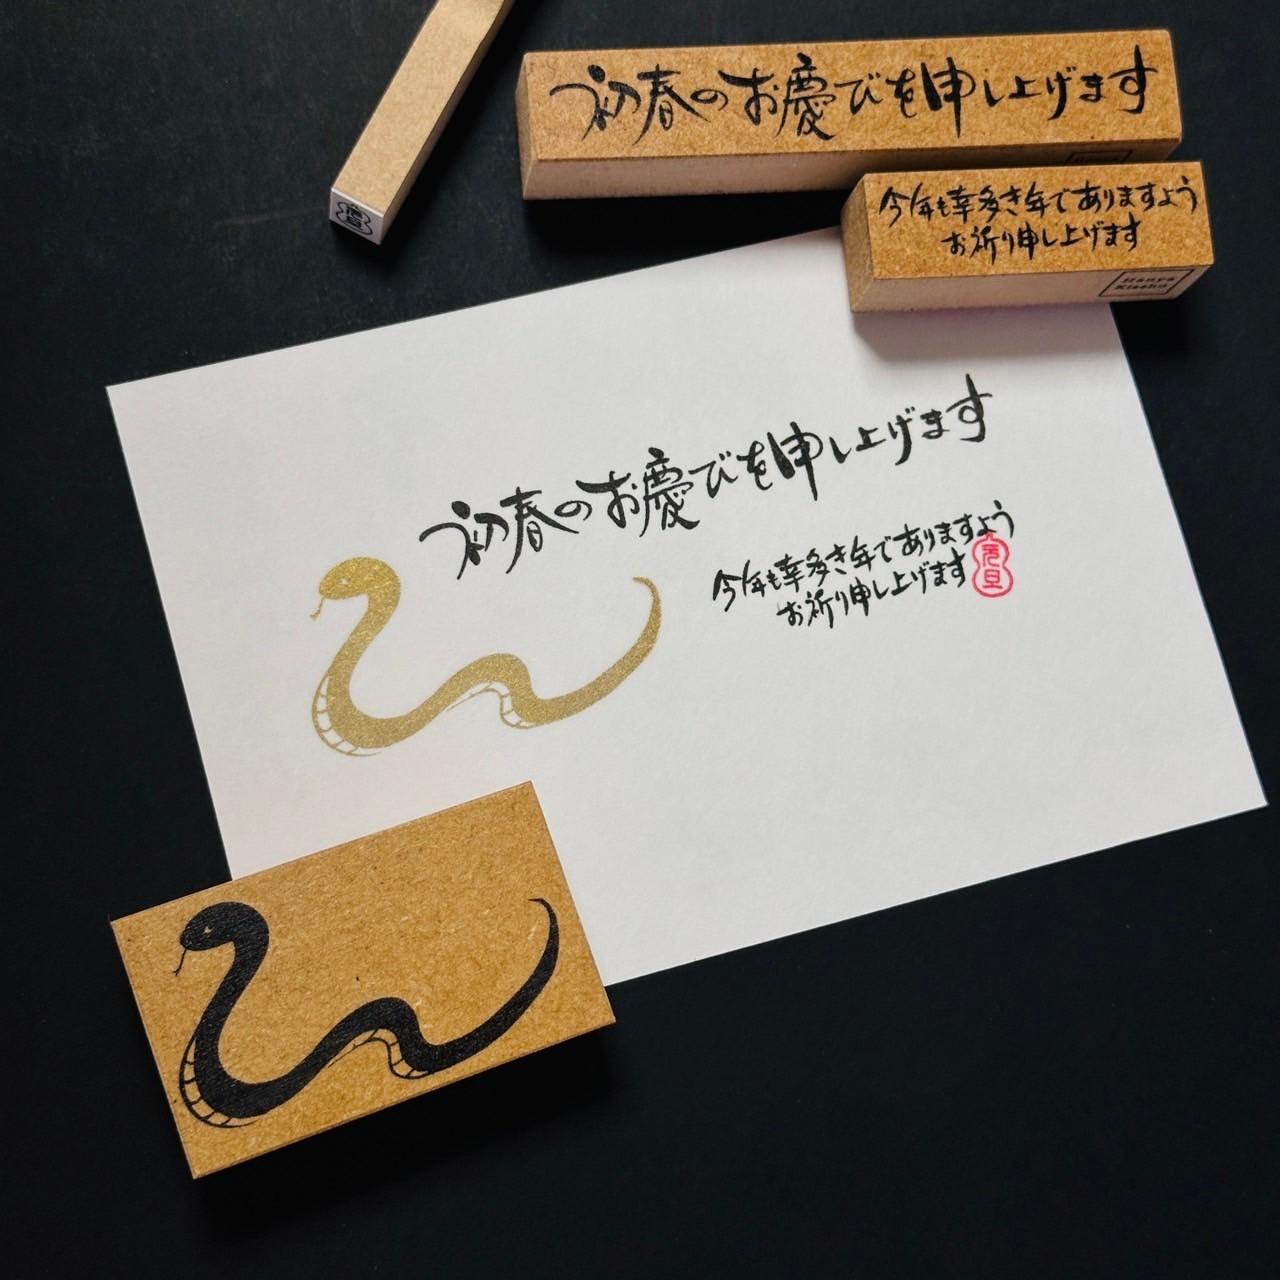 初春のお慶びを申し上げます
今年も幸多き年でありますよう
お祈り申し上げます
Hanya
Kissho
初春のお慶びを申し上げます
今年も幸多き年でありますよう
お祈り申し上げます
元旦